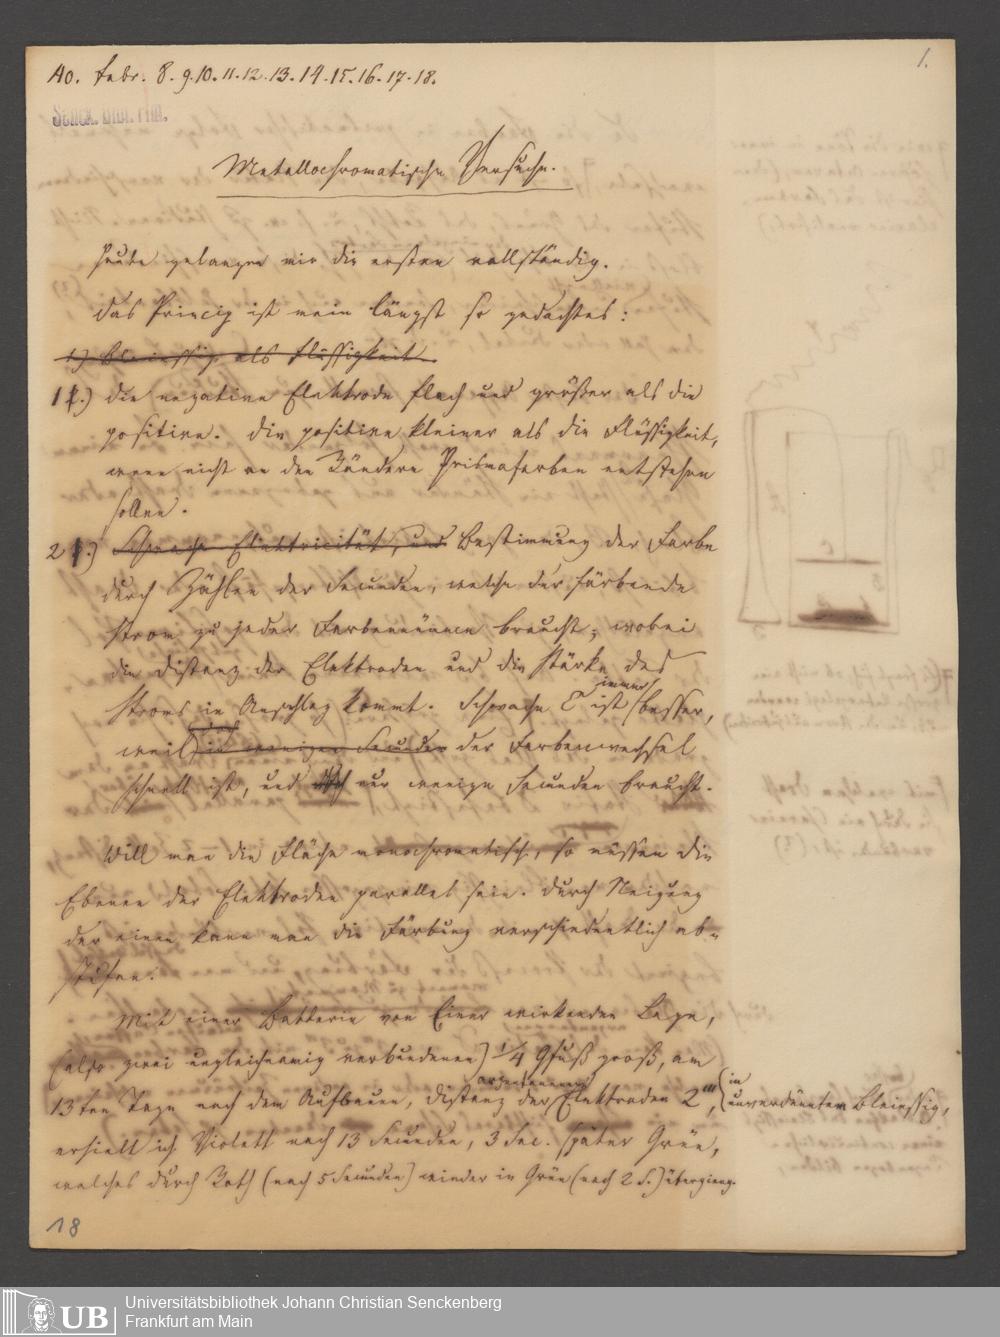 1.
40. Febr. 8. 9. 10. 11. 12. 13. 14. 15. 16. 17. 18.
Senck. Bibl. Ffm.
Metallochromatische Versuche.
Heute gelangen mir die ersten vollständig.
Das Princip ist mein längst so gedachtes:
1.) Bleiessig als Flüssigkeit.
1.) die negative Elektrode flach und größer als die
positive. Die positive kleiner als die Flüssigkeit,
wenn nicht an den Rändern Prismafarben entstehen
sollen.
2.) Schwache Elektricität, und Bestimmung der Farbe
durch Zählen der Secunden, welche der färbende
Strom zu jeder Farbennüance braucht; wobei
die Distanz der Elektroden und die Stärke des
Stroms in Anschlag kommt. Schwache E ist immer besser,
weil in wenigen Secunden der Farbenwechsel
schnell ist, und nur wenige Secunden braucht.
Will man die Fläche monochromatisch, so müssen die
Ebenen der Elektroden parallel sein. Durch Neigung
der einen kann man die Färbung verschiedentlich ab-
stufen.
Mit einer Batterie von Einer wirkenden Lage,
(also zwei ungleichnamig verbundenen) 1/4 Qfuß groß, am
13ten Tage nach dem Aufbauen, Distanz der Elektroden 2''', in unverdünntem Bleiessig,
erhielt ich Violett nach 13 Secunden, 3 Sec. später Grün,
welches durch Roth (nach 5 Secunden) wieder in Grün (nach 2 S.) übergieng.
18
UB
Universitätsbibliothek Johann Christian Senckenberg
Frankfurt am Main